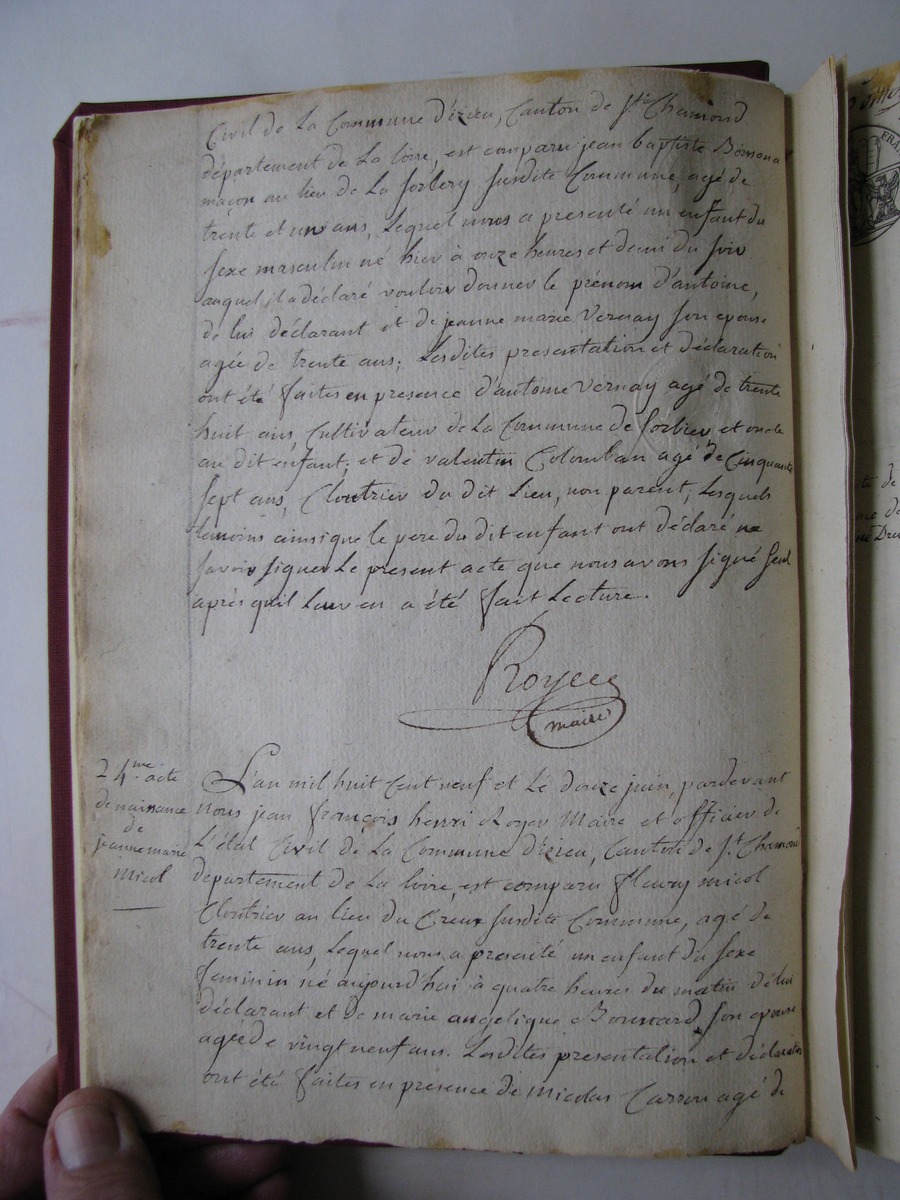 Civil de La Commune d'izieu, Canton de St. Chamond
département de La loire, est comparu jean baptiste
maçon au lieu de La Sorlery susdite Commune, agé de
trente et un ans, Lequel nous a presenté un enfant du
sexe masculin né hier à onze heures et demi du soir
auquel il a déclaré vouloir donner le prénom d'antoine,
de lui déclarant et de jeanne marie Vernay son epouse
agée de trente ans; Lesdites presentation et déclaration
ont été faites en presence d'antoine Vernay agé de trente
huit ans, Cultivateur de La Commune de Sorbier, et oncle
au dit enfant; et de valentin Colomban agé de Cinquante
sept ans, Cloutrier du dit Lieu, non parent; Lesquels
temoins ainsi que le pere du dit enfant ont déclaré ne
savoir signer Le present acte que nous avons signé seul
après qu'il Leur en a été fait Lecture.
Royer
maire
24me. acte
de naissance
de
jeanne marie
micol
L'an mil huit Cent neuf et Le douze juin, pardevant
nous jean françois henri Royer Maire et officier de
L'état Civil de La Commune d'izieu, Canton de St. Chamond
departement de La loire, est comparu fleury micol
Cloutrier au lieu du Creux susdite Commune, agé de
trente ans, Lequel nous a presenté un enfant du sexe
feminin né aujourd'hui à quatre heures du matin de lui
déclarant et de marie angelique son epouse
agée de vingt neuf ans. Lesdites presentation et déclaration
ont été faites en présence de nicolas Carron agé de